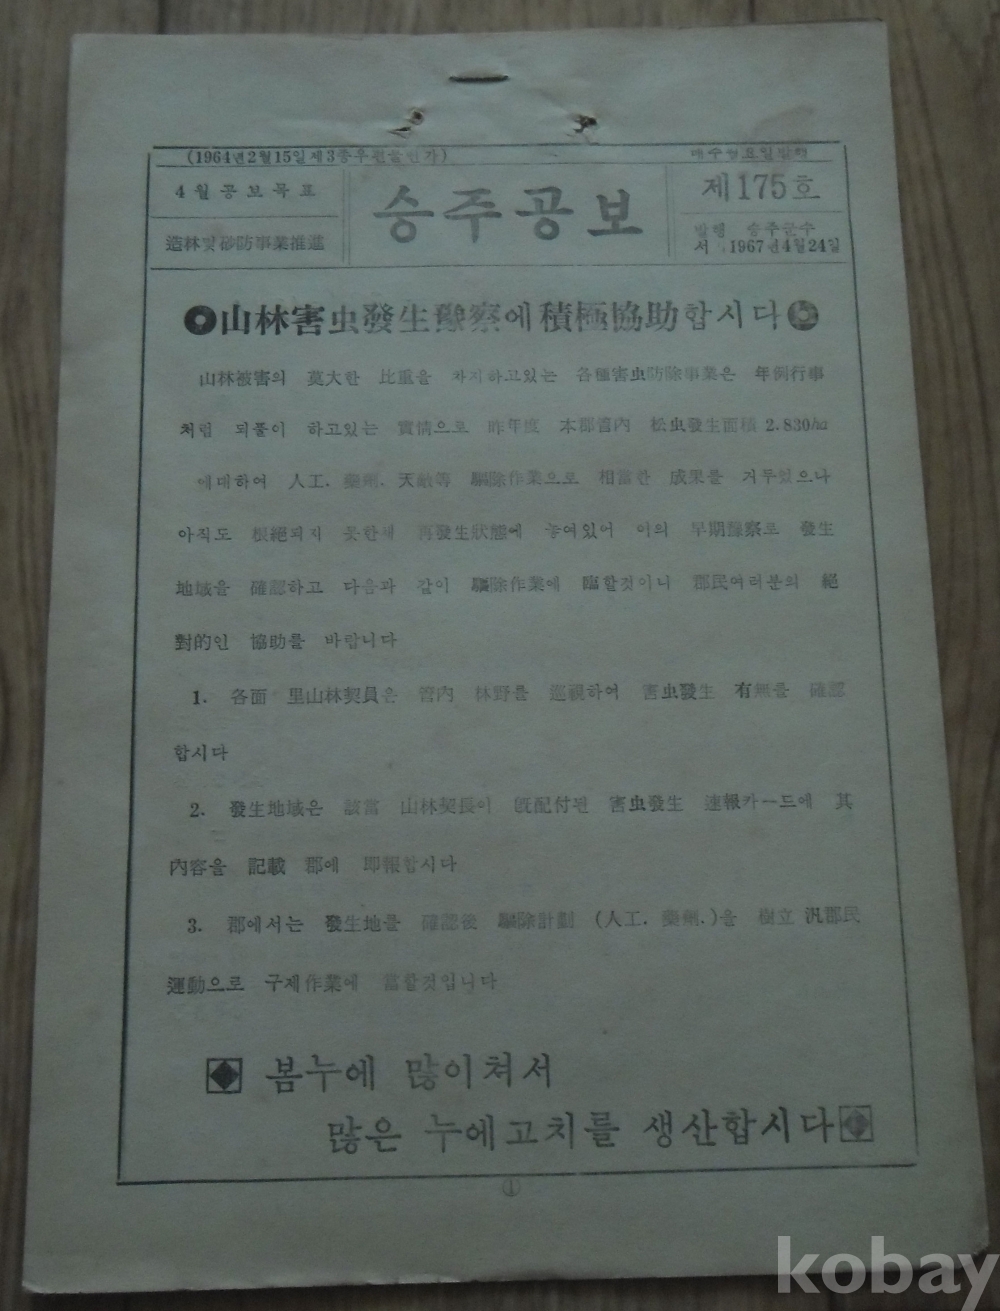 (1964년2월15일제3종우편물인가)
매주월요일발행
4월공보목표
造林및砂防事業推進
승주공보
제175호
발행 승주군수
서 1967년4월24일
山林害虫發生豫察에 積極協助합시다
山林被害의 莫大한 比重을 차지하고있는 各種害虫防除事業은 年例行事
처럼 되풀이 하고있는 實情으로 昨年度 本郡管內 松虫發生面積 2.830ha
에대하여 人工. 藥劑. 天敵等 驅除作業으로 相當한 成果를 거두었으나
아직도 根絶되지 못한채 再發生狀態에 놓여있어 이의 早期豫察로 發生
地域을 確認하고 다음과 같이 驅除作業에 臨할것이니 郡民여러분의 絕
對的인 協助를 바랍니다
1. 各面 里山林契員은 管內 林野를 巡視하여 害虫發生 有無를 確認
합시다
2. 發生地域은 該當 山林契長이 旣配付된 害虫發生 速報카ー드에 其
內容을 記載 郡에 即報합시다
3. 郡에서는 發生地를 確認後 驅除計劃 (人工. 藥劑.)을 樹立 汎郡民
運動으로 구제作業에 當할것입니다
봄누에 많이쳐서
많은 누에고치를 생산합시다
①
kobay